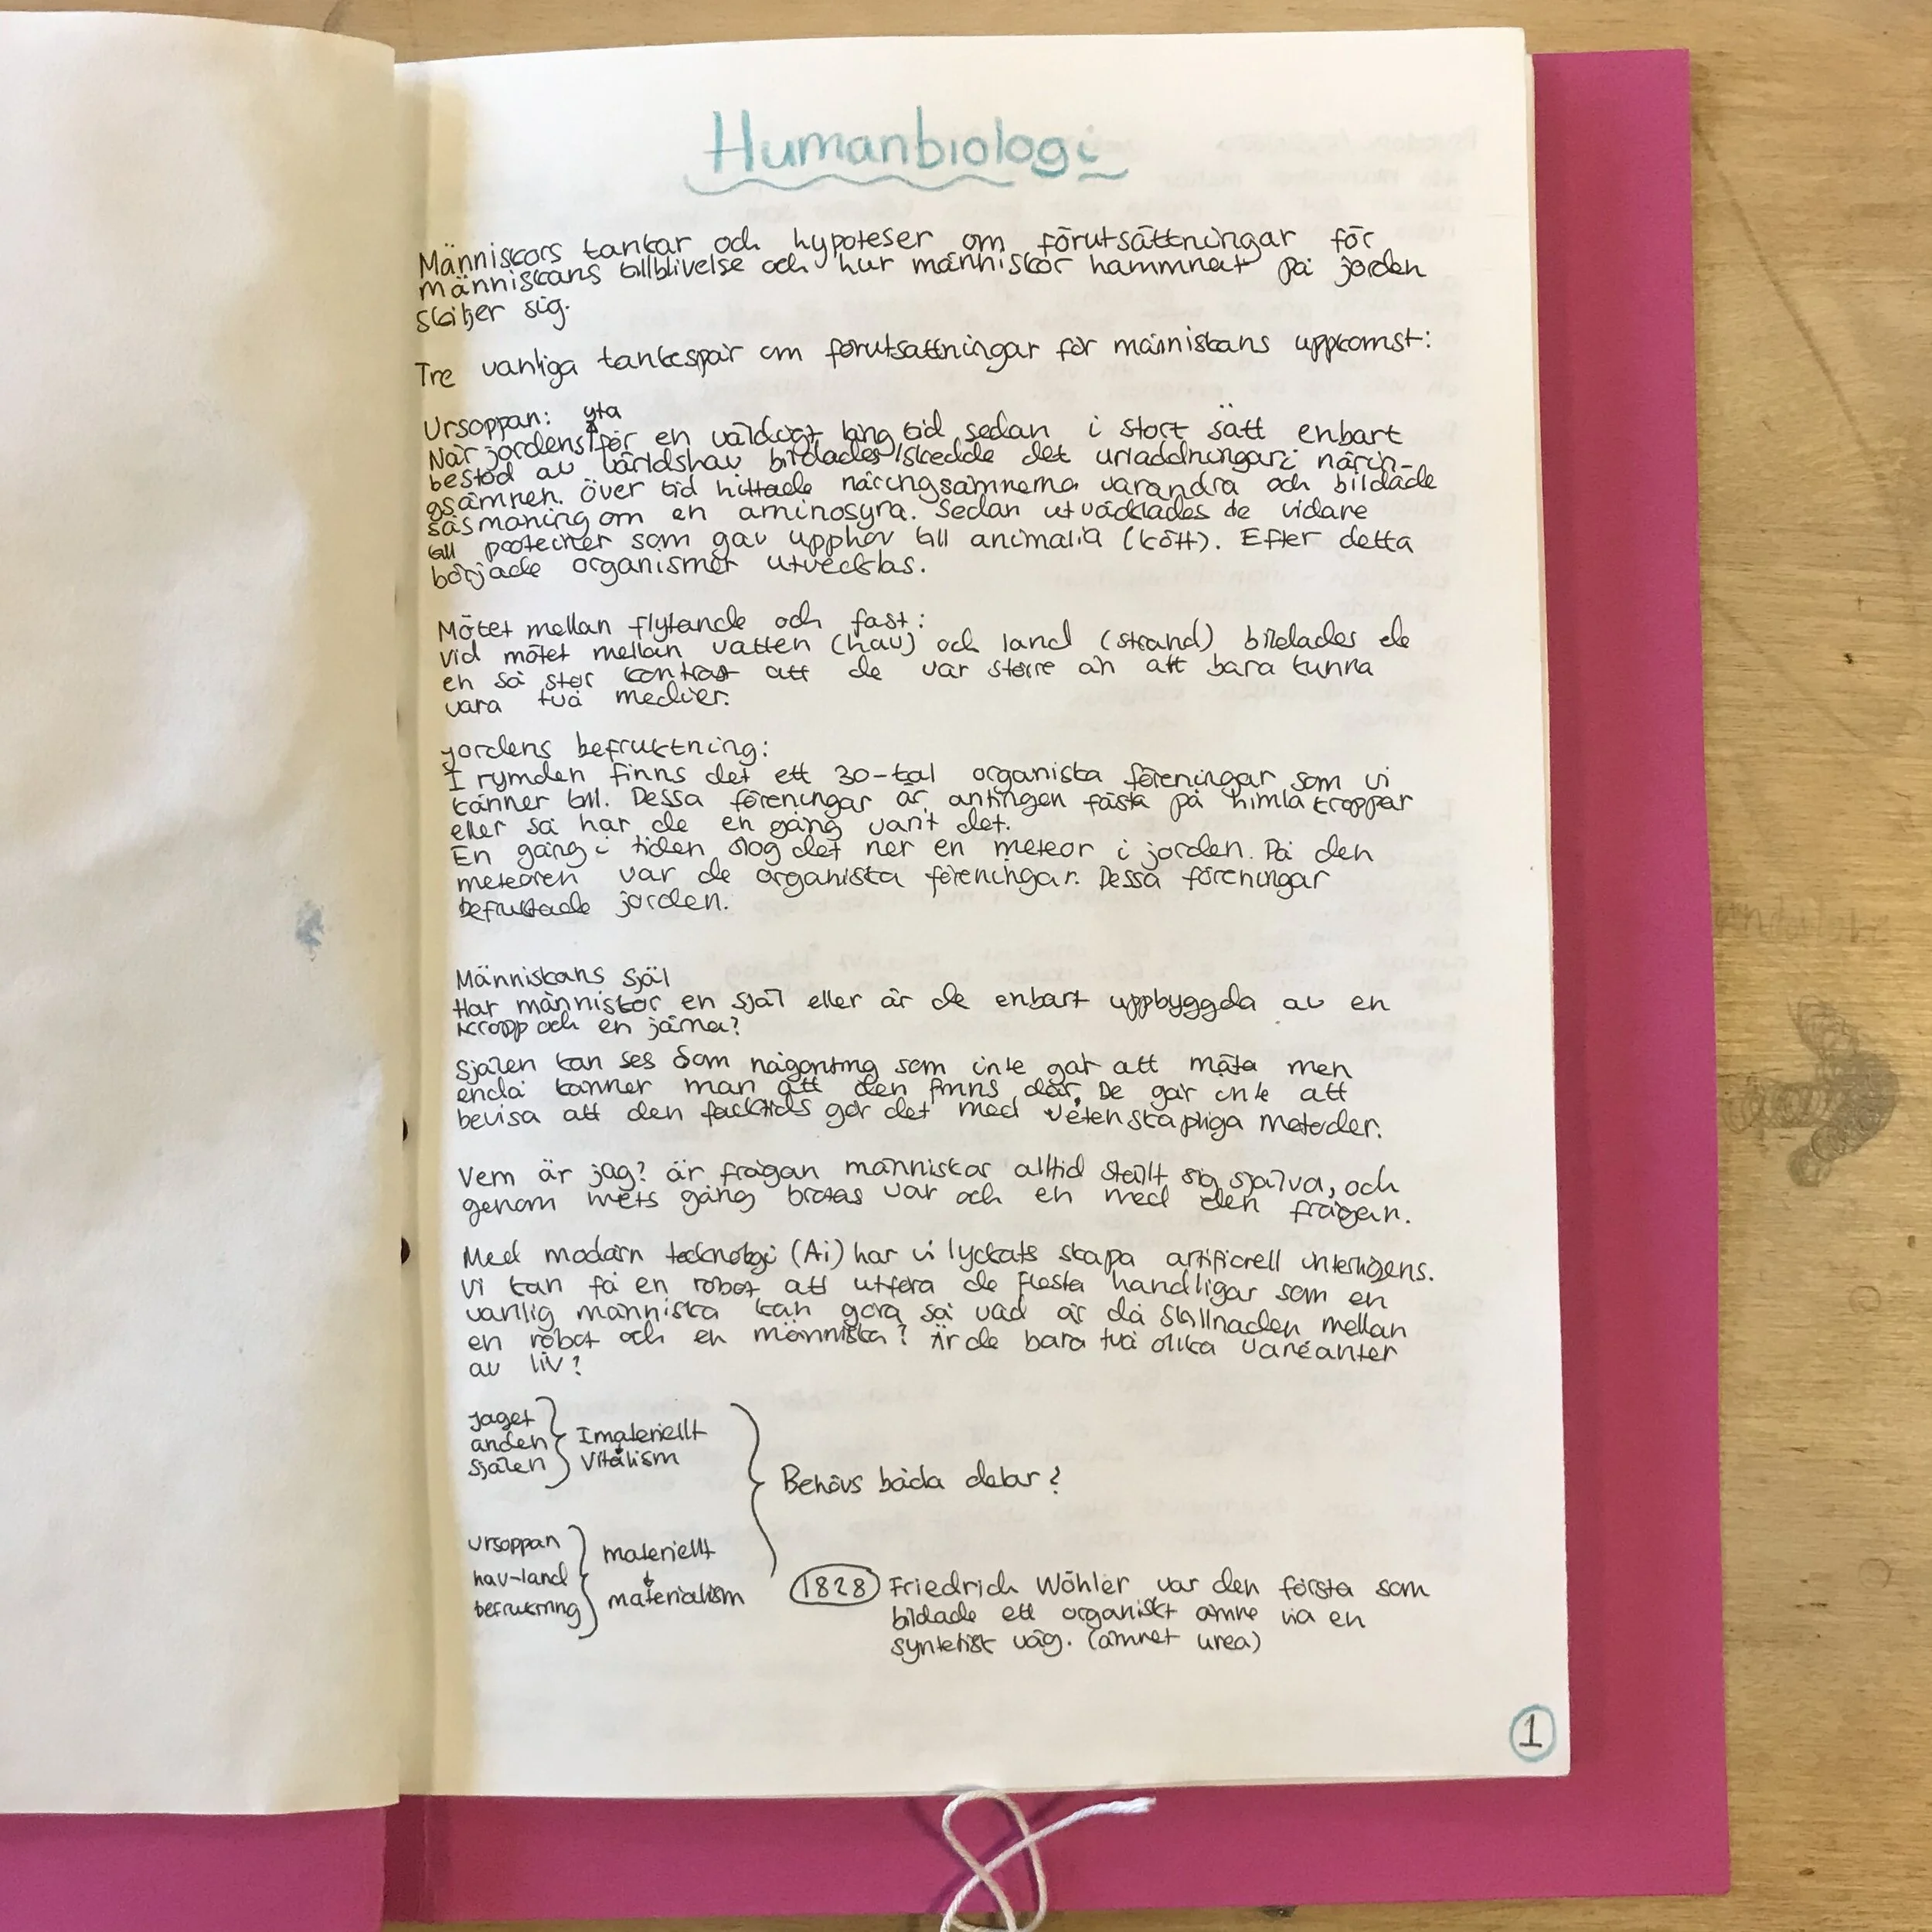 Humanbiologi
Människors tankar och hypoteser om förutsättningar för
människans tillblivelse och hur människor hammnat på jorden
skiljer sig.
Tre vanliga tankespår om förutsättningar för människans uppkomst:
Ursoppan:
yta
När jordens för en väldigt lång tid sedan i stort sätt enbart
bestod av världshav bildades/skedde det urladdningar i närin-
gsämnen. Över tid hittade näringsämnerna varandra och bildade
såsmåning om en aminosyra. Sedan utväcklades de vidare
till proteiner som gav upphov till animalia (kött). Efter detta
började organismer utvecklas.
Mötet mellan flytande och fast:
Vid mötet mellan vatten (hav) och land (strand) bildades de
en så stor kontrast att de var större än att bara kunna
vara två medier.
Jordens befruktning:
I rymden finns det ett 30-tal organiska föreningar som vi
känner till. Dessa föreningar är antingen fästa på himlakroppar
eller så har de en gång varit det.
En gång i tiden slog det ner en meteor i jorden. På den
meteoren var de organiska föreningar. Dessa föreningar
befruktade jorden.
Människans själ
Har människor en själ eller är de enbart uppbyggda av en
kropp och en järna?
Själen kan ses som någonting som inte går att mäta men
endå känner man att den finns där. De går inte att
bevisa att den facktids gör det med vetenskapliga metoder.
Vem är jag? är frågan människar alltid ställt sig själva, och
genom livets gång brotas var och en med den frågan.
Med modärn tecknologi (Ai) har vi lyckats skapa artificiell interligens.
Vi kan få en robot att utföra de flesta handligar som en
vanlig människa kan göra så vad är då skillnaden mellan
en robot och en människa? Är de bara två olika varéanter
av liv?
Jaget
anden
själen
Imateriellt
Vitalism
Behövs båda delar?
ursoppan
hav-land
befruktning
materiellt
materialism
1828 Friedrich Wöhler var den första som
bildade ett organiskt ämne via en
syntetisk väg. (ämnet urea)
1